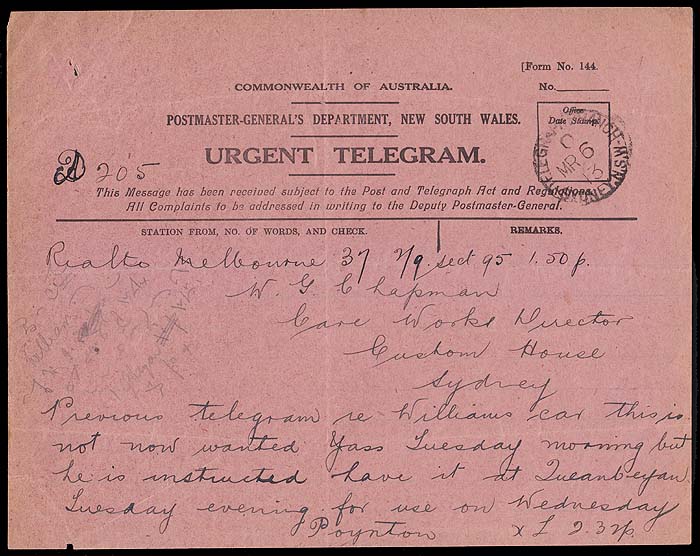 [Form No. 144.
COMMONWEALTH OF AUSTRALIA.
No.
POSTMASTER-GENERAL'S DEPARTMENT, NEW SOUTH WALES.
Office
Date Stamp.
URGENT TELEGRAM.
MR 6
205
This Message has been received subject to the Post and Telegraph Act and Regulations.
All Complaints to be addressed in writing to the Deputy Postmaster-General.
STATION FROM, NO. OF WORDS, AND CHECK.
REMARKS.
Rialto Melbourne 37 2/9 sect 95 1.50 p.
W. G. Chapman
Care Works Director
Custom House
Sydney
Previous telegram re Williams car this is
not now wanted Yass Tuesday morning but
he is instructed have it at Queanbeyan
Tuesday evening for use on Wednesday
Poynton